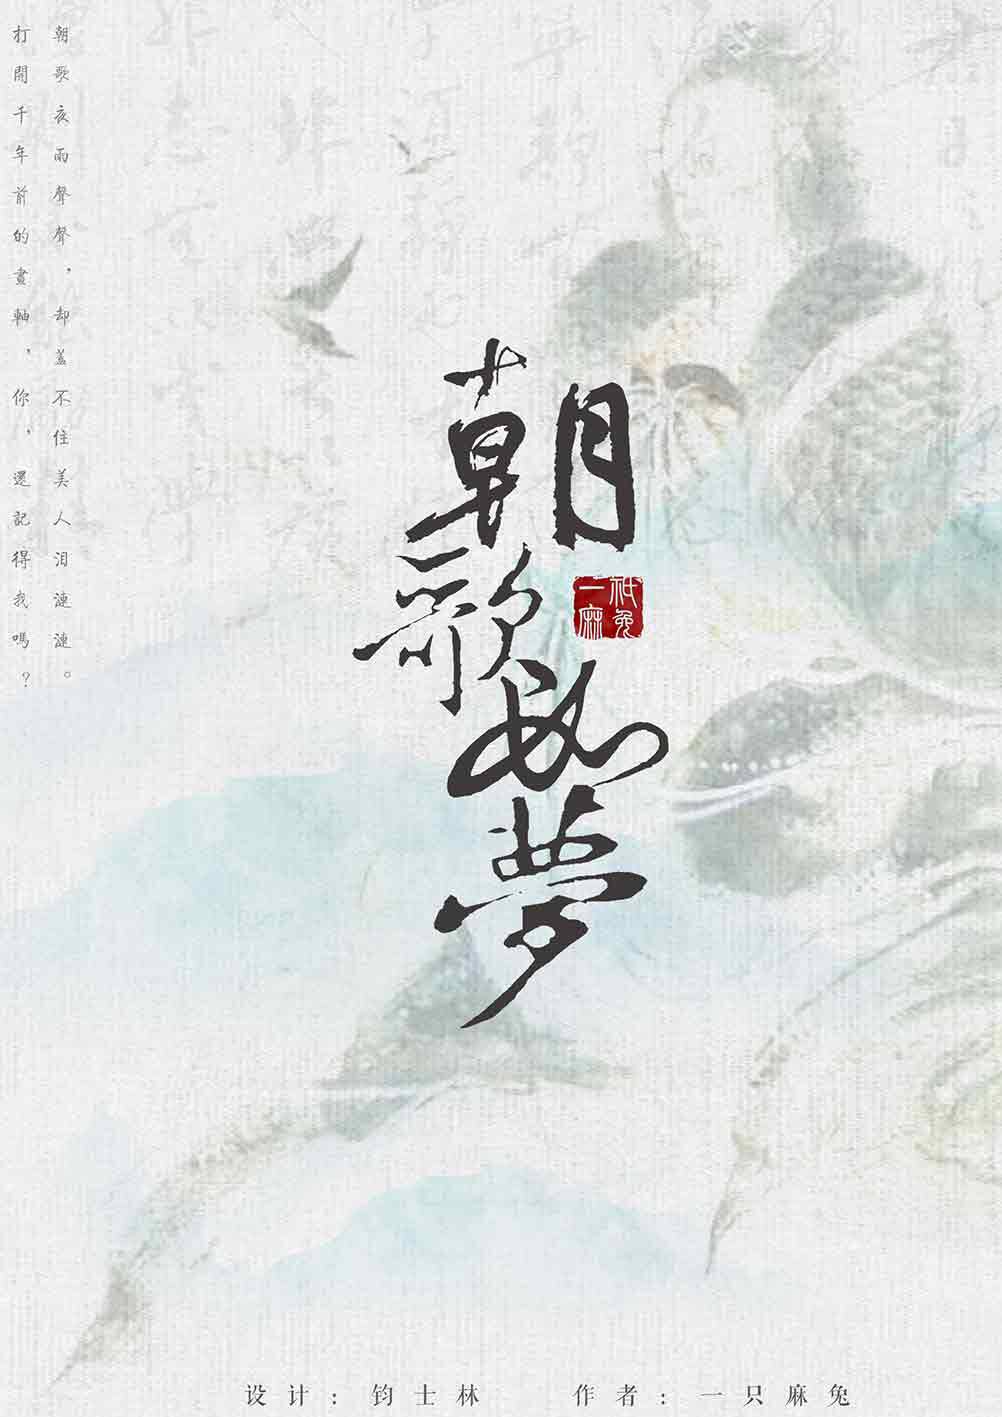 朝歌夜雨聲聲，却蓋不住美人泪漣漣。
打開千年前的畫軸，你，還記得我嗎？
朝歌如夢
一祇
麻兔
设计：钧士林 作者：一只麻兔